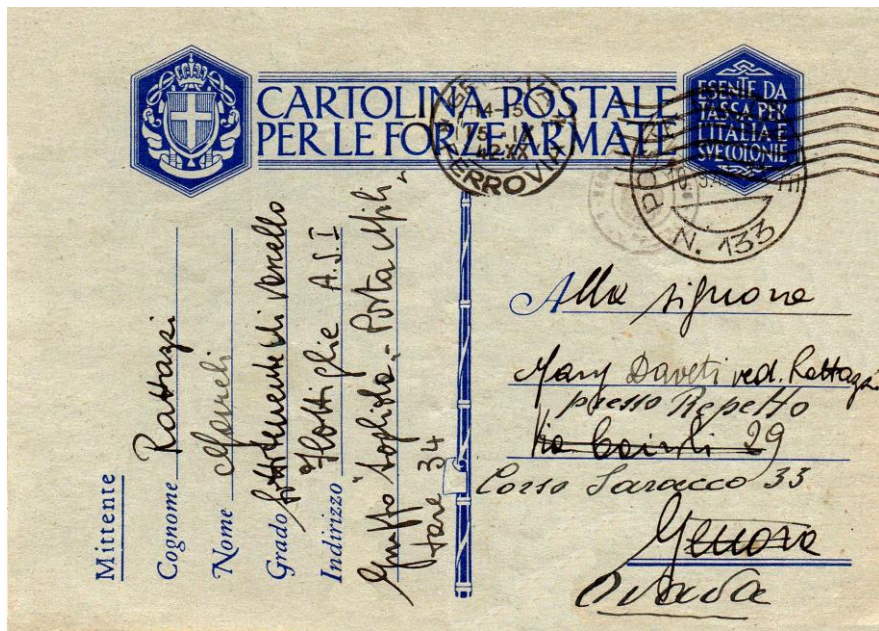 CARTOLINA POSTALE
PER LE FORZE ARMATE
ESENTE DA
TASSA PER
L'ITALIA E
SVE COLONIE
14-15
15 IX
42.XX
FERROVIA
POSTA
N. 133
Mittente
Cognome Rattazzi
Nome
Grado Sottotenente di Vascello
Indirizzo Flottiglie A.S.I
Gruppo Sogliola - Posta Mili
tare 34
Alla signora
Mary Daveti ved. Rattazzi
presso Repetto
Via Cairoli 29
Corso Saracco 33
Genova
Ovada